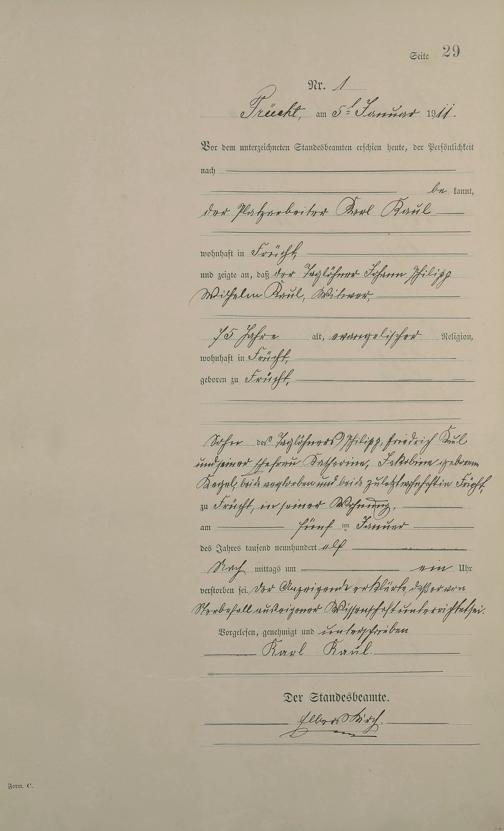 Seite 29
Nr. 1
Frücht, am 5t Januar 1911.
Vor dem unterzeichneten Standesbeamten erschien heute, der Persönlichkeit
nach
be kannt,
der Platzarbeiter Karl Kaul
wohnhaft in Frücht,
und zeigte an, daß der Taglöhner Johann Philipp
Wilhelm Kaul, Witwer,
75 Jahre alt, evangelischer Religion,
wohnhaft in Frücht,
geboren zu Frücht,
Sohn des Taglöhners Philipp, Friedrich Kaul
und seiner Ehefrau Katharine, Jakobine geborene
beide verstorben und beide zuletzt wohnhaft in Frücht,
zu Frücht, in seiner Wohnung,
am fünf ten Januar
des Jahres tausend neunhundert elf
Nach mittags um ein Uhr
verstorben sei. Der Anzeigende erklärte, daß er vom
Sterbefall aus eigener Wissenschaft unterrichtet sei.
Vorgelesen, genehmigt und unterschrieben
Karl Kaul.
Der Standesbeamte.
Form. C.